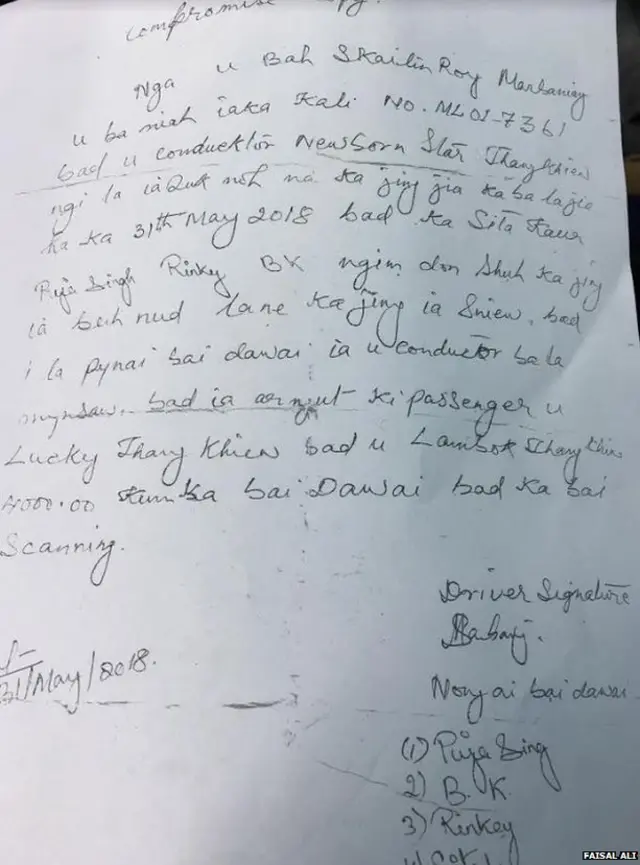 compromise
Nga u Bah Skailin Roy Marbaniang
u ba niah ia ka Kali No. ML01-7361
bad u conducktor Newborn Star Thangkhiew
ngi la ia suk noh na ka jing jia ka ba la jia
ha ka 31th May 2018 bad ka Sita Kaur
Puja Singh Rinky BK ngim don shuh ka jing
ia beh nud lane ka jing ia sniew, bad
i la pynai bai dawai ia u conductor ba la
mynsaw. bad ia ar ngut ki passenger u
Lucky Thang Khiew bad u Lambok Thangkhiew
4000.00 kum ka bai Dawai bad ka bai
Scanning.
Driver Signature
31/May/2018.
Nong ai bai dawai
(1) Puja Sing
2) B. K.
3) Rinkey
FAISAL ALI